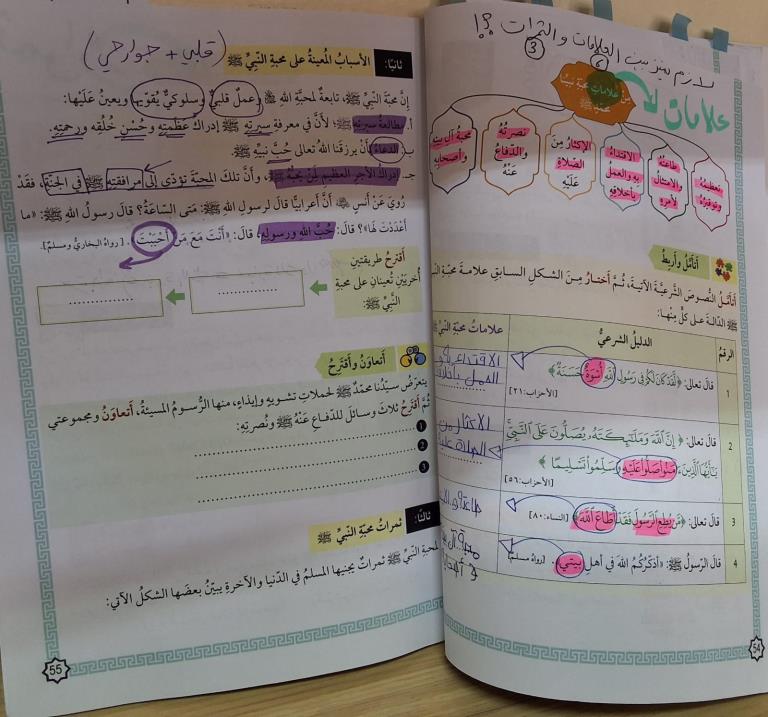 لازم نميز بين العلامات والثمرات ؟!
6
3
علامات
مِن علاماتِ محبّةِ نبيِّنا
محمّدٍ ﷺ
تعظيمُهُ
وتوقيرُهُ
طاعتُهُ
والامتثالُ
لأمرِهِ
الاقتداءُ
بِهِ والعملُ
بأخلاقِهِ
الإكثارُ مِنَ
الصّلاةِ
عَلَيْهِ
نصرتُهُ
والدّفاعُ
عَنْهُ
محبّةُ آلِ بيتِهِ
وأصحابِهِ
أتأمّلُ وأربطُ
أتأمّلُ النُّصوصَ الشّرعيّةَ الآتيةَ، ثُمَّ أختارُ مِنَ الشكلِ السابقِ علامةَ محبّةِ
ﷺ الدّالةَ على كلٍّ مِنْها:
الرقمُ
الدليلُ الشرعيُّ
علاماتُ محبّةِ
1
قالَ تعالى: ﴿لَّقَدْ كَانَ لَكُمْ فِي رَسُولِ اللَّهِ أُسْوَةٌ حَسَنَةٌ﴾
[الأحزاب: ٢١]
الاقتداء به و
العمل
2
قالَ تعالى: ﴿إِنَّ اللَّهَ وَمَلَٰٓئِكَتَهُۥ يُصَلُّونَ عَلَى النَّبِيِّ
يَٰٓأَيُّهَا الَّذِينَ ءَامَنُوا صَلُّوا عَلَيْهِ وَسَلِّمُوا تَسْلِيمًا﴾
[الأحزاب: ٥٦]
الاكثار من
الصلاة
3
قالَ تعالى: ﴿مَّن يُطِعِ الرَّسُولَ فَقَدْ أَطَاعَ اللَّهَ﴾ [النساء: ٨٠]
4
قالَ الرّسولُ ﷺ: «أذكّرُكُمُ اللهَ في أهلِ بيتي». [رواهُ مسلم]
54
ثانيًا:
الأسبابُ المُعينةُ على محبةِ النّبيِّ ﷺ
(قلبي + جوارحي)
إنَّ محبّةَ النّبيِّ ﷺ، تابعةٌ لمحبّةِ اللهِ وعملٌ قلبيٌّ وسلوكيٌّ يُقوّيها ويعينُ عَلَيْها:
أ. مطالعةُ سيرتِهِ ﷺ؛ لأنَّ في معرفةِ سيرتِهِ ﷺ إدراكُ عظمتِهِ وحُسْنِ خُلُقِه ورحمتِهِ.
ب. الدعاءُ أنْ يرزقَنا اللهُ تعالى حُبَّ نبيِّهِ ﷺ.
جـ. إدراكُ الأجرِ العظيمِ لمَنْ يحبُّهُ ﷺ، وأنَّ تلكَ المحبّةَ تؤدّي إلى مرافقتِهِ ﷺ في الجنّةِ، فقَدْ
رُوِيَ عَنْ أنسٍ أنَّ أعرابيًّا قالَ لرسولِ اللهِ ﷺ: متى السّاعةُ؟ قالَ رسولُ اللهِ ﷺ: «ما
أعْدَدْتَ لها»؟ قالَ: حُبَّ اللهِ ورسولِهِ، قالَ: «أنْتَ مَعَ مَنْ أحْبَبْتَ». [رواهُ البخاريُّ ومسلم].
أقترحُ طريقتينِ
أُخرَيَيْنِ تُعينانِ على محبةِ
النّبيِّ ﷺ:
أتعاونُ وأقترحُ
يتعرّضُ سيّدُنا محمدٌ ﷺ لحملاتِ تشويهٍ وإيذاءٍ، منها الرُّسومُ المسيئةُ، أتعاونُ ومجموعتي
ثُمَّ أقترحُ ثلاثَ وسائلَ للدّفاعِ عَنْهُ ﷺ ونُصرتِهِ:
1
2
3
ثالثًا:
ثمراتُ محبّةِ النّبيِّ ﷺ
لمحبةِ النّبيِّ ﷺ ثمراتٌ يجنيها المسلمُ في الدّنيا والآخرةِ يبيّنُ بعضَها الشكلُ الآتي:
55